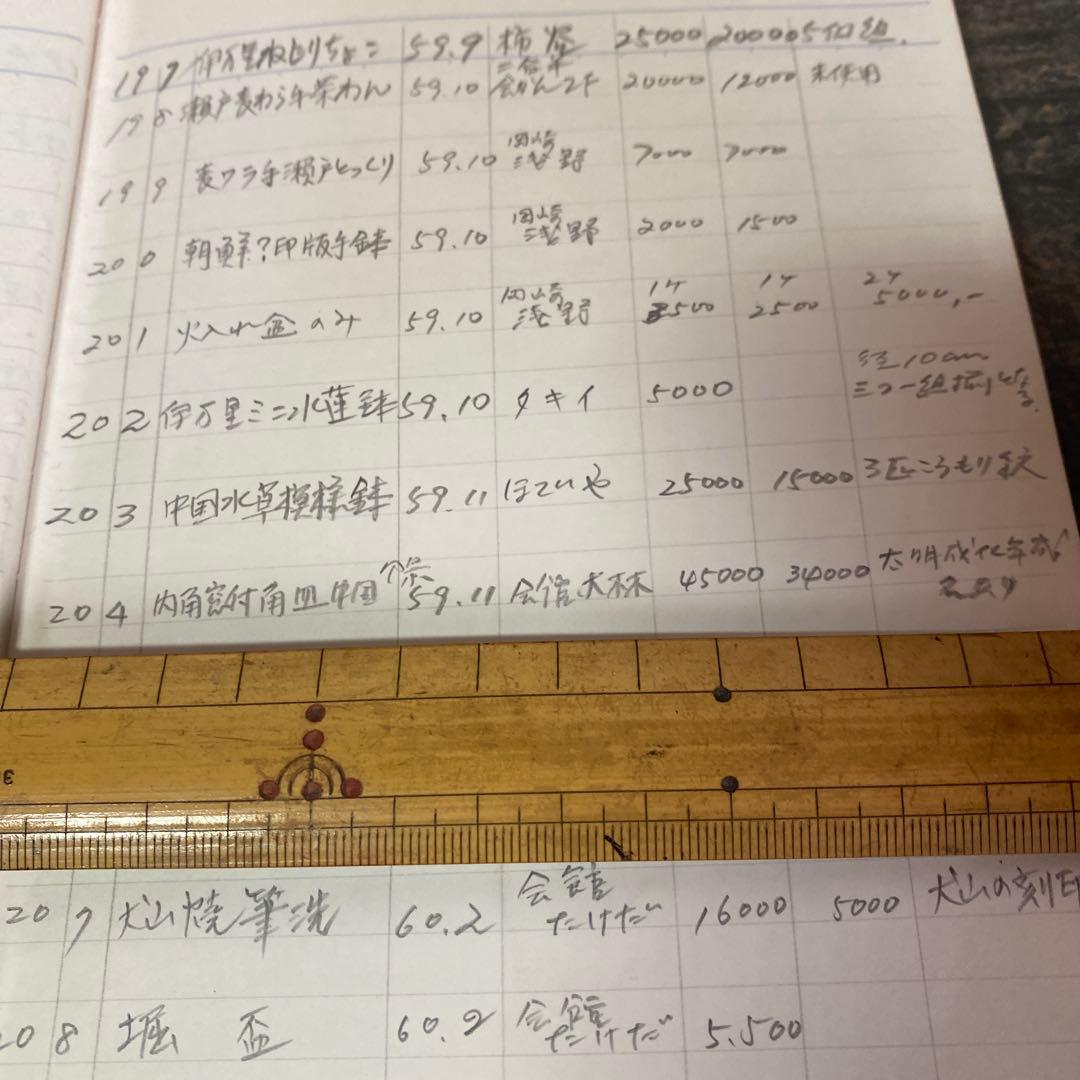 197 伊万里 ちょこ 59.9 柿 25000 20000 5個組.
198 瀬戸麦わら手茶わん 59.10 2F 20000 12000 未使用
199 麦ワラ手瀬戸とっくり 59.10 岡崎浅野 7000 7000
200 朝鮮?印版手鉢 59.10 岡崎浅野 2000 1500
201 火入れ 59.10 岡崎浅野 1ケ 2500 1ケ 2500 2ケ 5000,-
202 伊万里ミニ水蓮鉢 59.10 タキイ 5000 径10cm 三つ一組
203 中国水草模様鉢 59.11 ほていや 25000 15000 3匹こうもり紋
204 角皿中国 59.11 会館大林 45000 34000 大明成化年
3
207 犬山焼筆洗 60.2 会館たけだ 16000 5000 犬山の刻印
208 堀 盃 60.2 会館たけだ 5.500